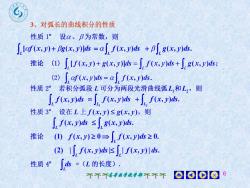 3、对弧长的曲线积分的性质
性质 1° 设α、β为常数，则
∫_L[αf(x,y)+βg(x,y)]ds = α∫_L f(x,y)ds + β∫_L g(x,y)ds.
推论 (1) ∫_L[f(x,y)+g(x,y)]ds = ∫_L f(x,y)ds + ∫_L g(x,y)ds;
(2) ∫_L αf(x,y)ds = α∫_L f(x,y)ds.
性质 2° 若积分弧段 L 可分为两段光滑曲线弧L₁和L₂，则
∫_L f(x,y)ds = ∫_{L₁} f(x,y)ds + ∫_{L₂} f(x,y)ds.
性质 3° 设在 L 上 f(x,y) ≤ g(x,y)，则
∫_L f(x,y)ds ≤ ∫_L g(x,y)ds.
推论 (1) f(x,y) ≥ 0 ⇒ ∫_L f(x,y)ds ≥ 0.
(2) |∫_L f(x,y)ds| ≤ ∫_L |f(x,y)|ds.
性质 4° ∫_L ds =（L 的长度）.
6